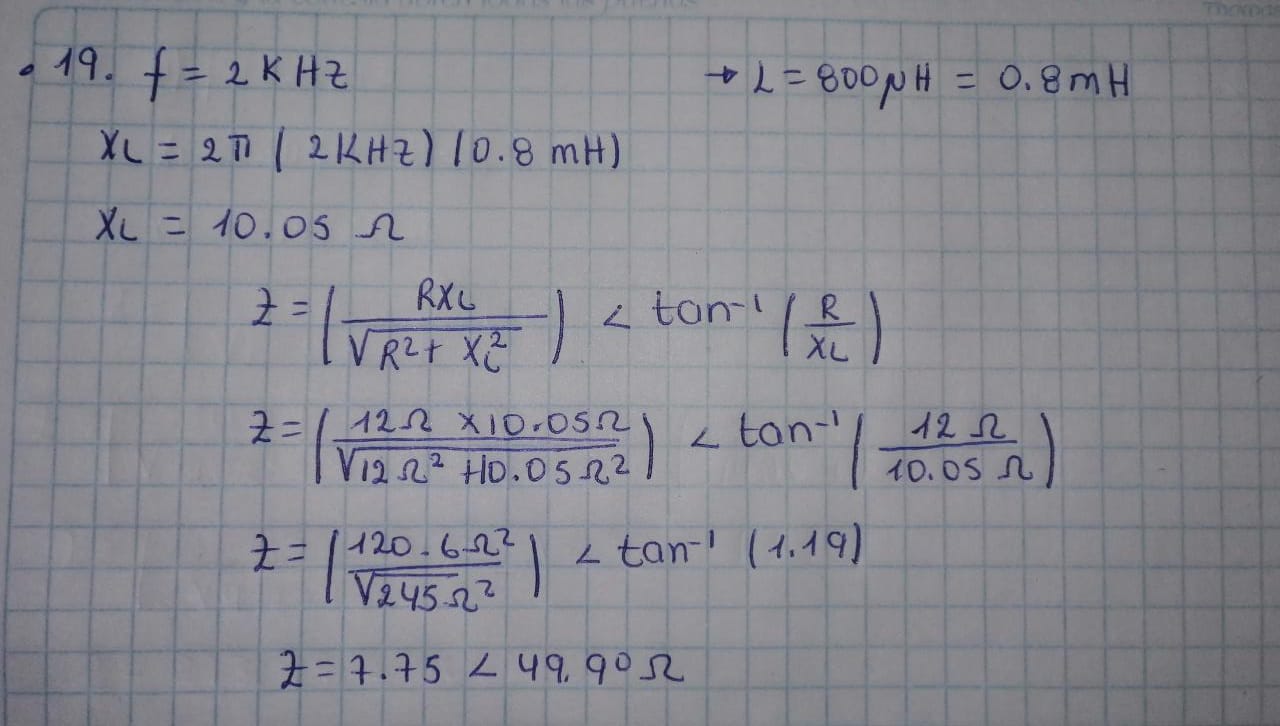 • 19. f = 2 KHZ → L = 800 μH = 0.8 mH
XL = 2π ( 2KHZ) (0.8 mH)
XL = 10.05 Ω
Z = ( RXL / √R² + XL² ) < tan⁻¹ ( R / XL )
Z = ( 12Ω x10.05Ω / √12Ω² +10.05Ω² ) < tan⁻¹ ( 12 Ω / 10.05 Ω )
Z = ( 120.6Ω² / √245Ω² ) < tan⁻¹ (1.19)
Z = 7.75 < 49.90Ω